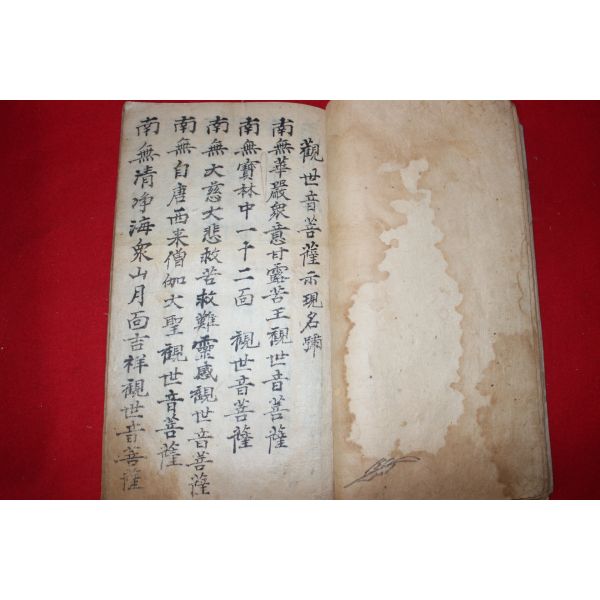 觀世音菩薩示現名號
南無華嚴衆意甘露苦王觀世音菩薩
南無寶林中一千二面 觀世音菩薩
南無大慈大悲救苦救難靈感觀世音菩薩
南無自唐西来僧伽大聖觀世音菩薩
南無清淨海衆山月面吉祥觀世音菩薩